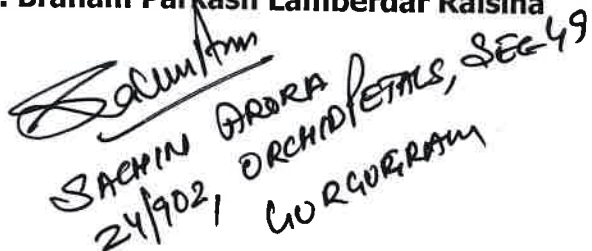 . Braham Parkash Lamberdar Raisina
SACHIN ARORA
24/902, ORCHID PETALS, SEC 49
GURGURRAM